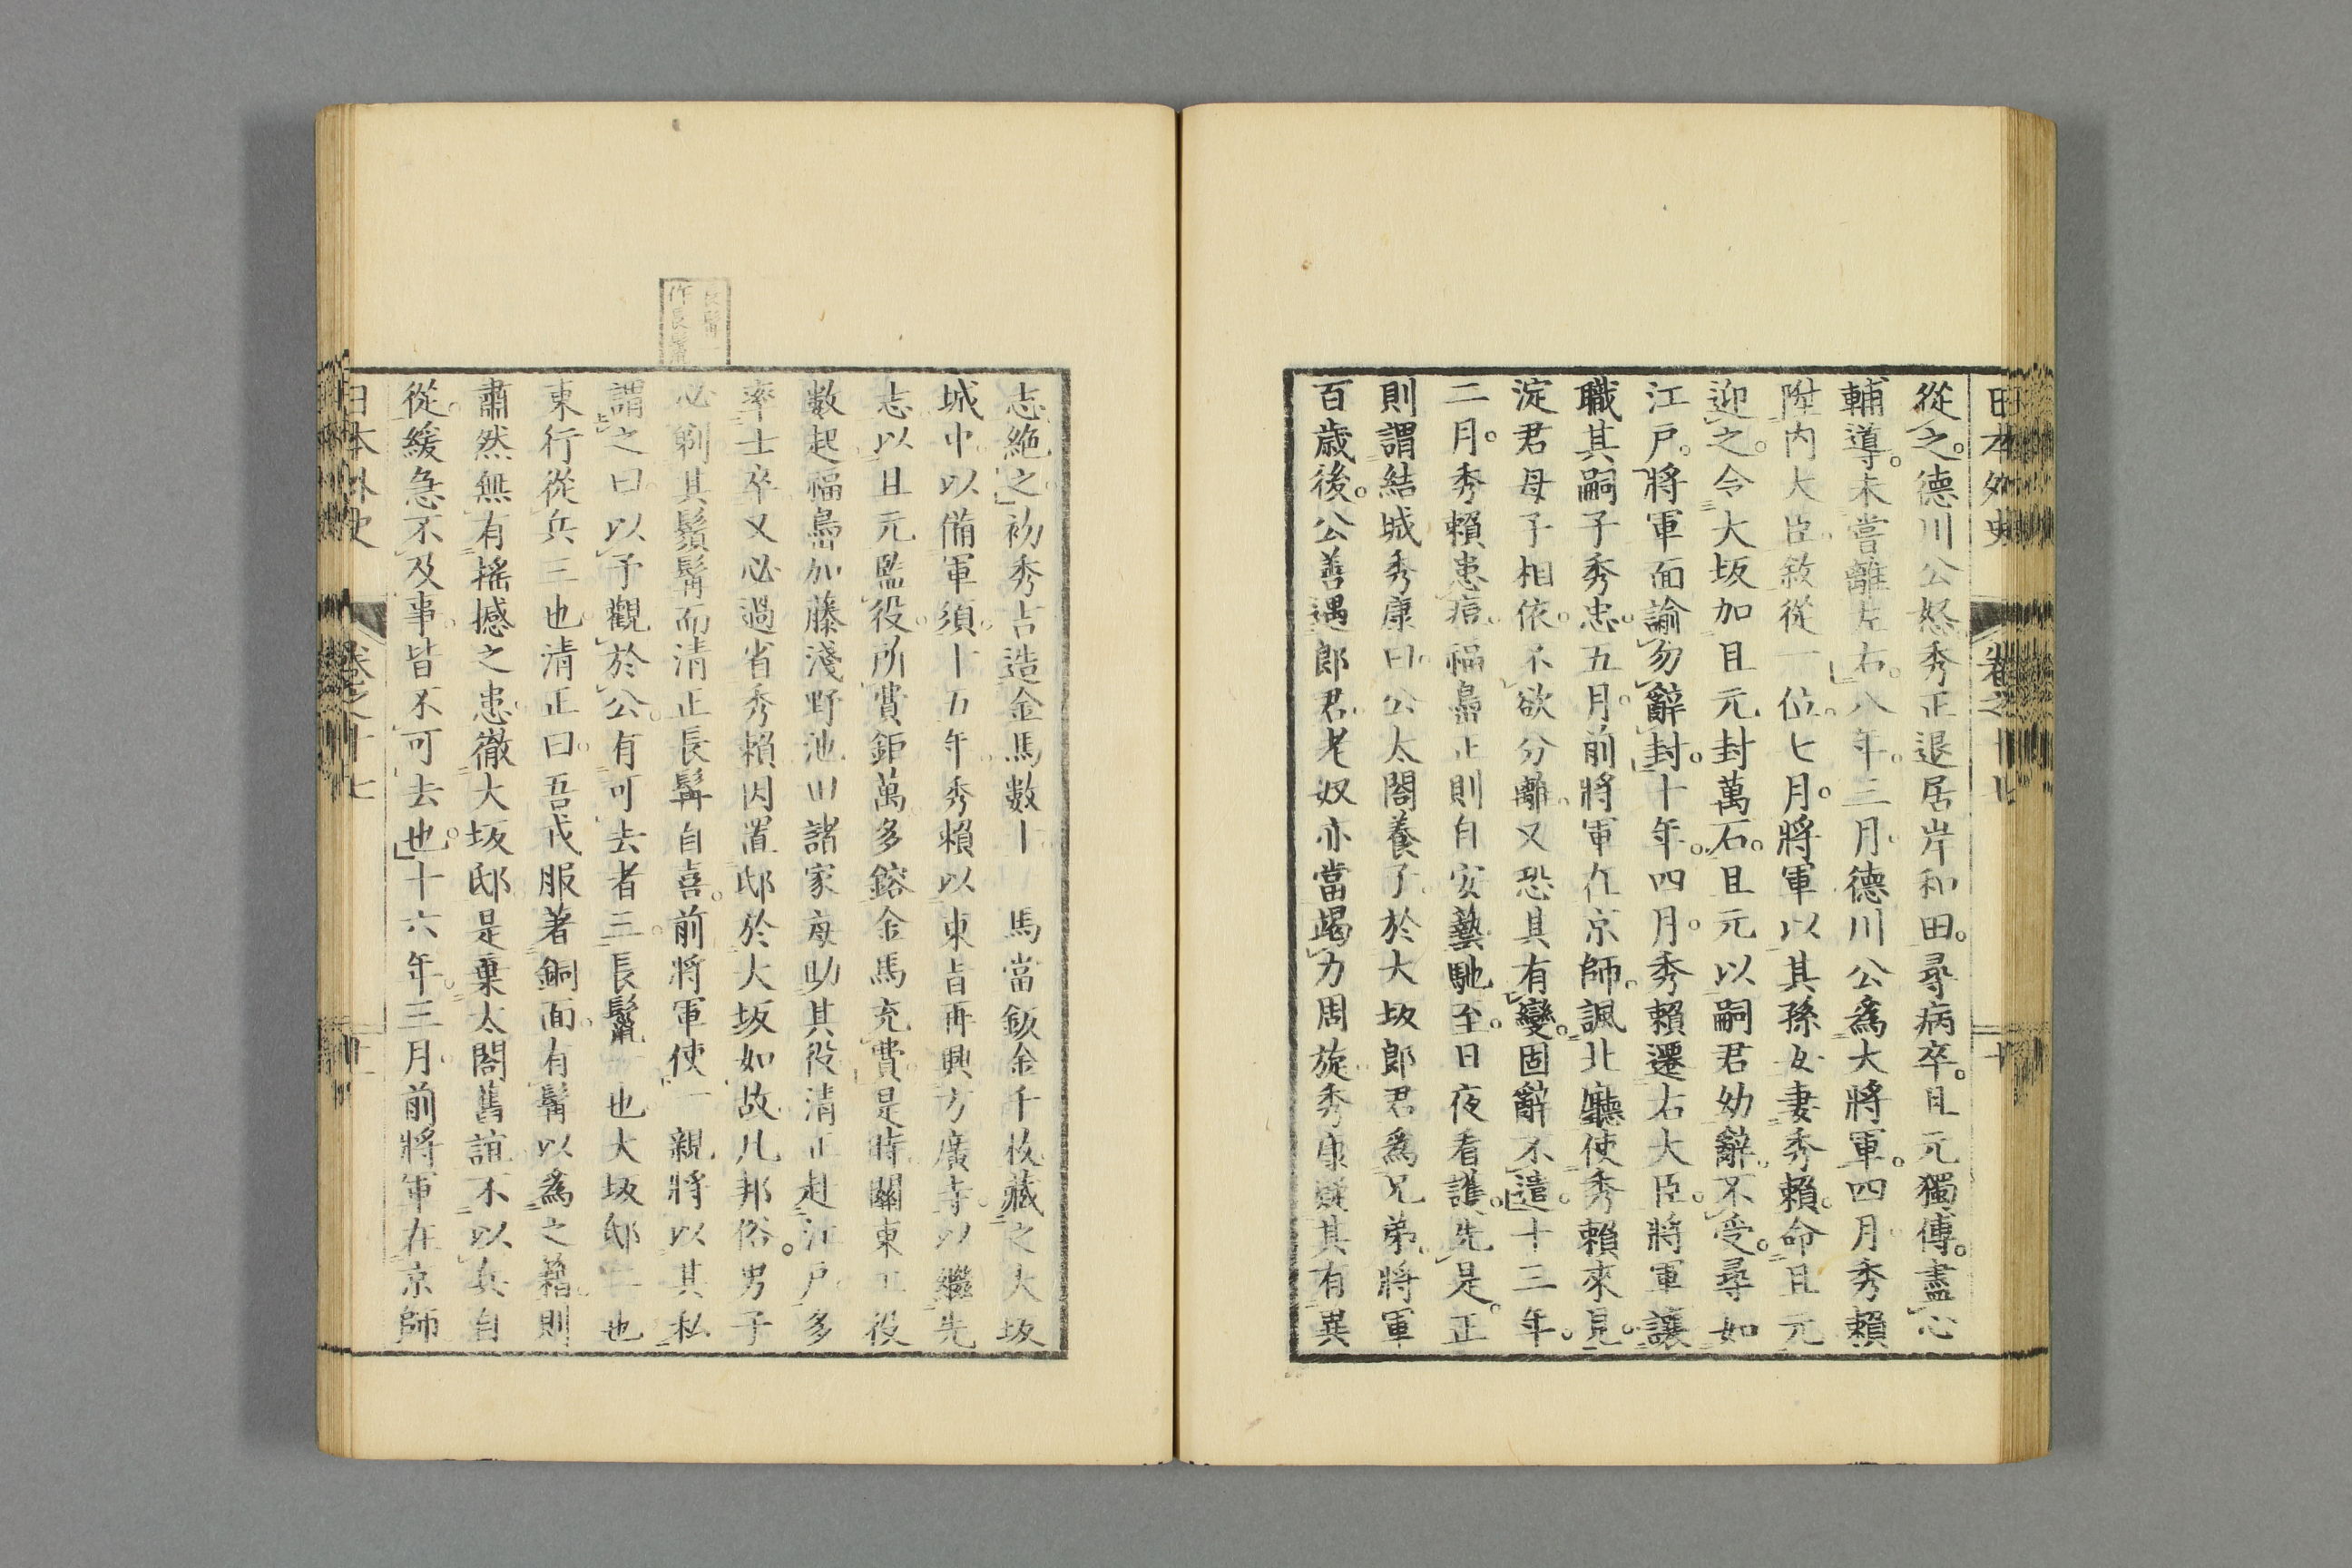 日本外史 卷之十七 十
從之。德川公怒秀正退居岸和田。尋病卒。且元獨傅。盡心
輔導。未嘗離左右。八年。三月。德川公爲大將軍。四月秀賴
陞內大臣。敘從一位。七月。將軍以其孫女妻秀賴。命且元
迎之。令大坂加且元封萬石。且元以嗣君幼辭。不受。尋如
江戶。將軍面諭勿辭封。十年。四月。秀賴遷右大臣。將軍讓
職其嗣子秀忠。五月。前將軍在京師。諷北廳使秀賴來見。
淀君母子相依。不欲分離。又恐其有變。固辭不遣。十三年。
二月。秀賴患痘。福島正則自安藝馳至。日夜看護。先是。正
則謂結城秀康曰。公太閤養子。於大坂郎君爲兄弟。將軍
百歲後。公善遇郎君。老奴亦當竭力周旋。秀康疑其有異
志絕之。初秀吉造金馬數十 馬當鈑金千枚。藏之大坂
城中。以備軍須。十五年。秀賴以東旨再興方廣寺。以繼先
志。以且元監役。所費鉅萬。多鎔金馬充費。是時關東工役
數起。福島加藤淺野池田諸家每助其役。清正赴江戶。多
率士卒。又必過省秀賴。因置邸於大坂如故。凡邦俗。男子
必剃其鬚髯。而清正長髯自喜。前將軍使一親將以其私
謂之曰。以予觀於公。有可去者三。長鬣一也。大坂邸二也
東行從兵三也。清正曰。吾戎服著銅面。有髯以爲之藉。則
肅然無有搖撼之患。徹大坂邸。是棄太閤舊誼。不以兵自
從。緩急不及事。皆不可去也。十六年。三月。前將軍在京師
日本外史 卷之十七
長髯一
作長鬣